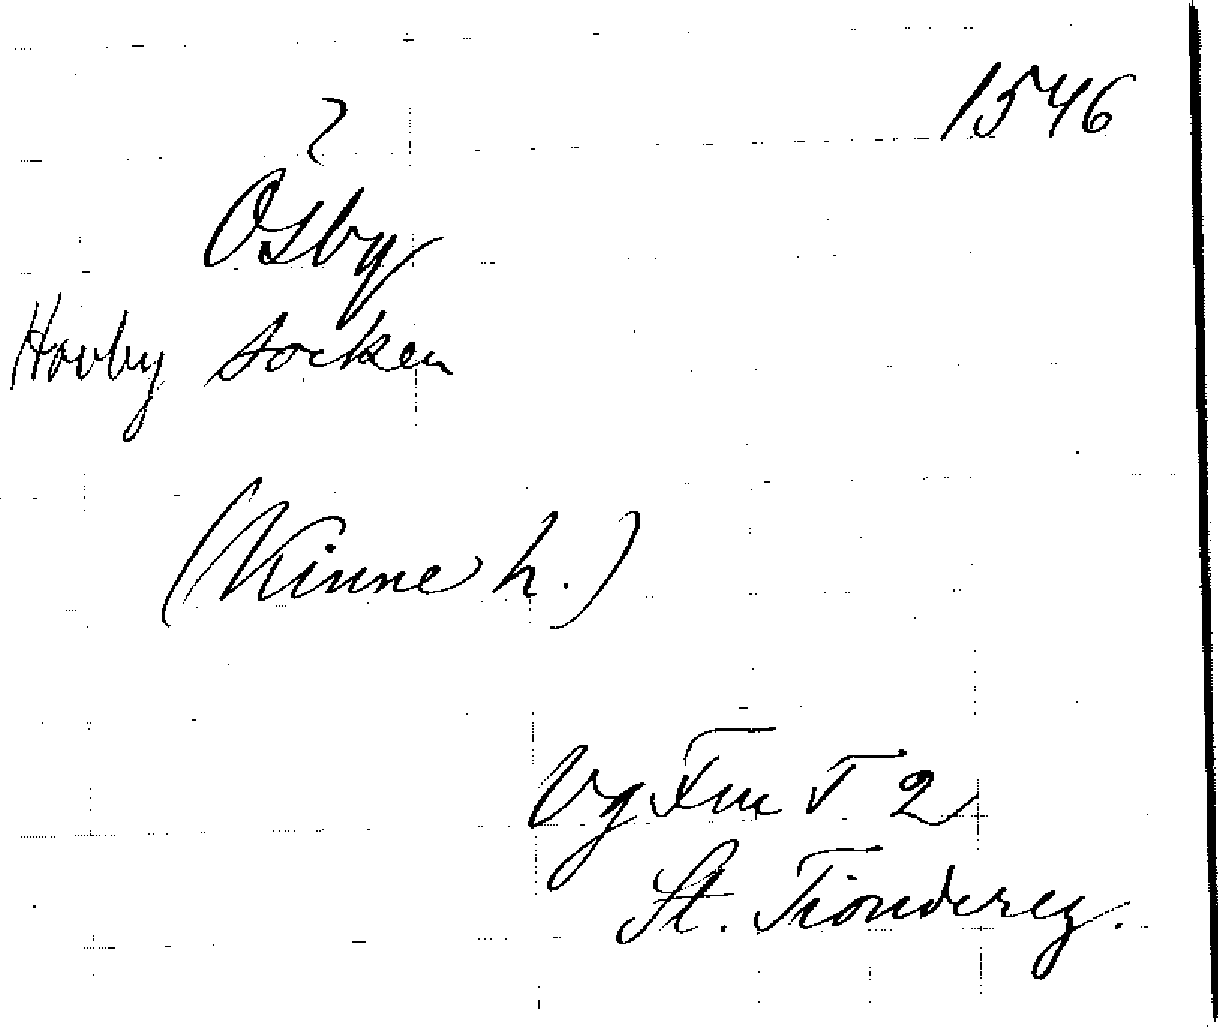 1546
?
Osby
Hovby socken
(Kinne h.)
Vg Fm T 2
St. Tiondereg.